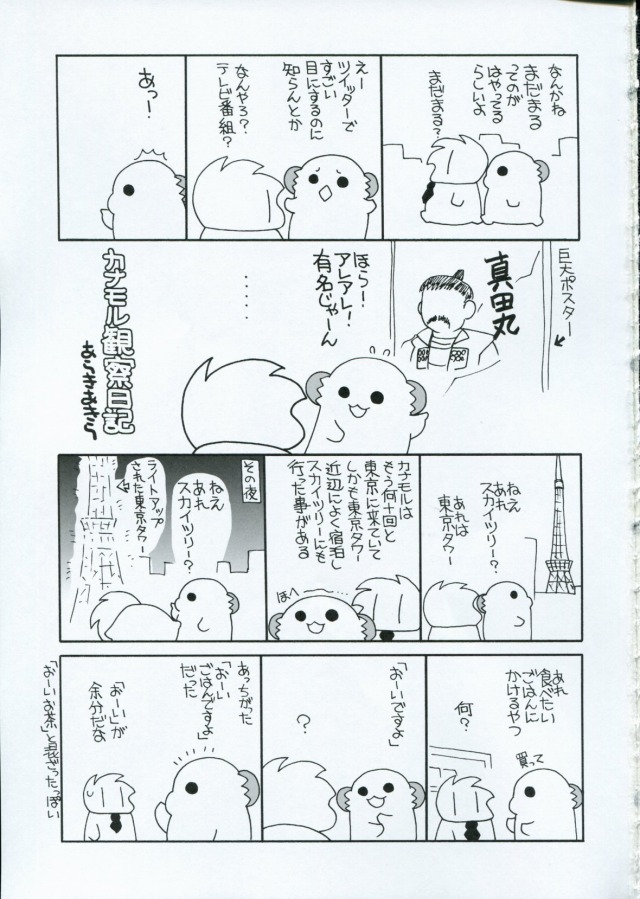 なんかね
まだまる
ってのが
はやってる
らしいよ
まだまる?
えー
ツイッターで
すごい
目にするのに
知らんとか
なんやろ?
テレビ番組?
あっー!
巨大ポスター
真田丸
ほらー!
アレアレ!
有名じゃーん
・・・・・
カナモル観察日記
あらきあきら
ねえ
あれ
スカイツリー?
あれは
東京タワー
カナモルは
もう何十回と
東京に来ていて
しかも東京タワー
近辺によく宿泊し
スカイツリーにも
行った事がある
ほへー
その夜
ねえ
あれ
スカイツリー?
ライトアップ
された東京タワー
あれ
食べたい
ごはんに
かけるやつ
買って
何?
「おーいですよ」
?
あっちがった
「おーい
ごはんですよ」
だった
「おーい」が
余分だな
「おーいお茶」と混ざったっぽい